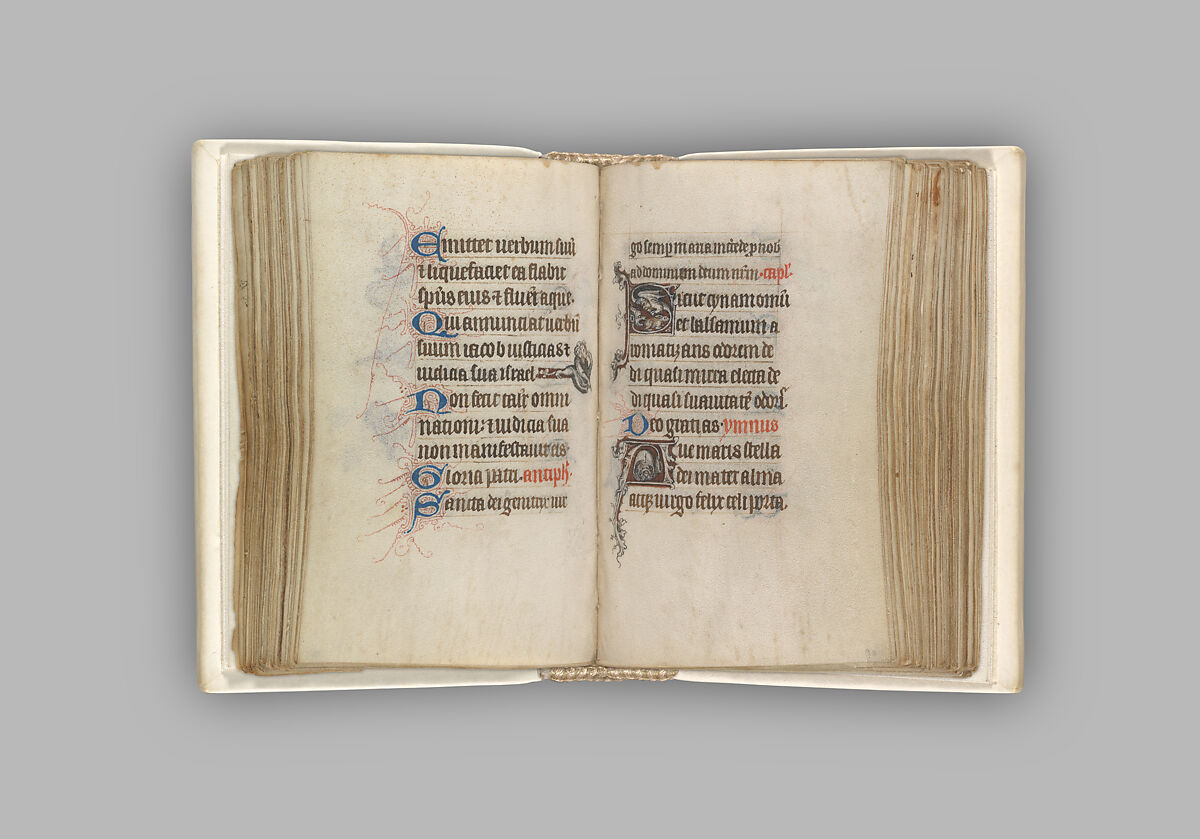 Emittet uerbum suū
⁊ liquefaciet ea flabit
spūs eius ⁊ fluēt aque.
Qui annunciat uerbū
suum iacob iusticias ⁊
iudicia sua israel
Non fecit talr̄ omni
nationi: ⁊ iudicia sua
non manifestauit eis
Gloria patri. antiph.
Sancta dei genitrix uir
go semp maria intcede p nob
ad dominum deum nrm. capl.
Sicut cynamomū
et balsamum a
romatizans odorem de
di quasi mirra electa de
di quasi suauitatē odoris.
Deo gratias. ymnus
Aue maris stella
dei mater alma
atq; uirgo felix celi porta.